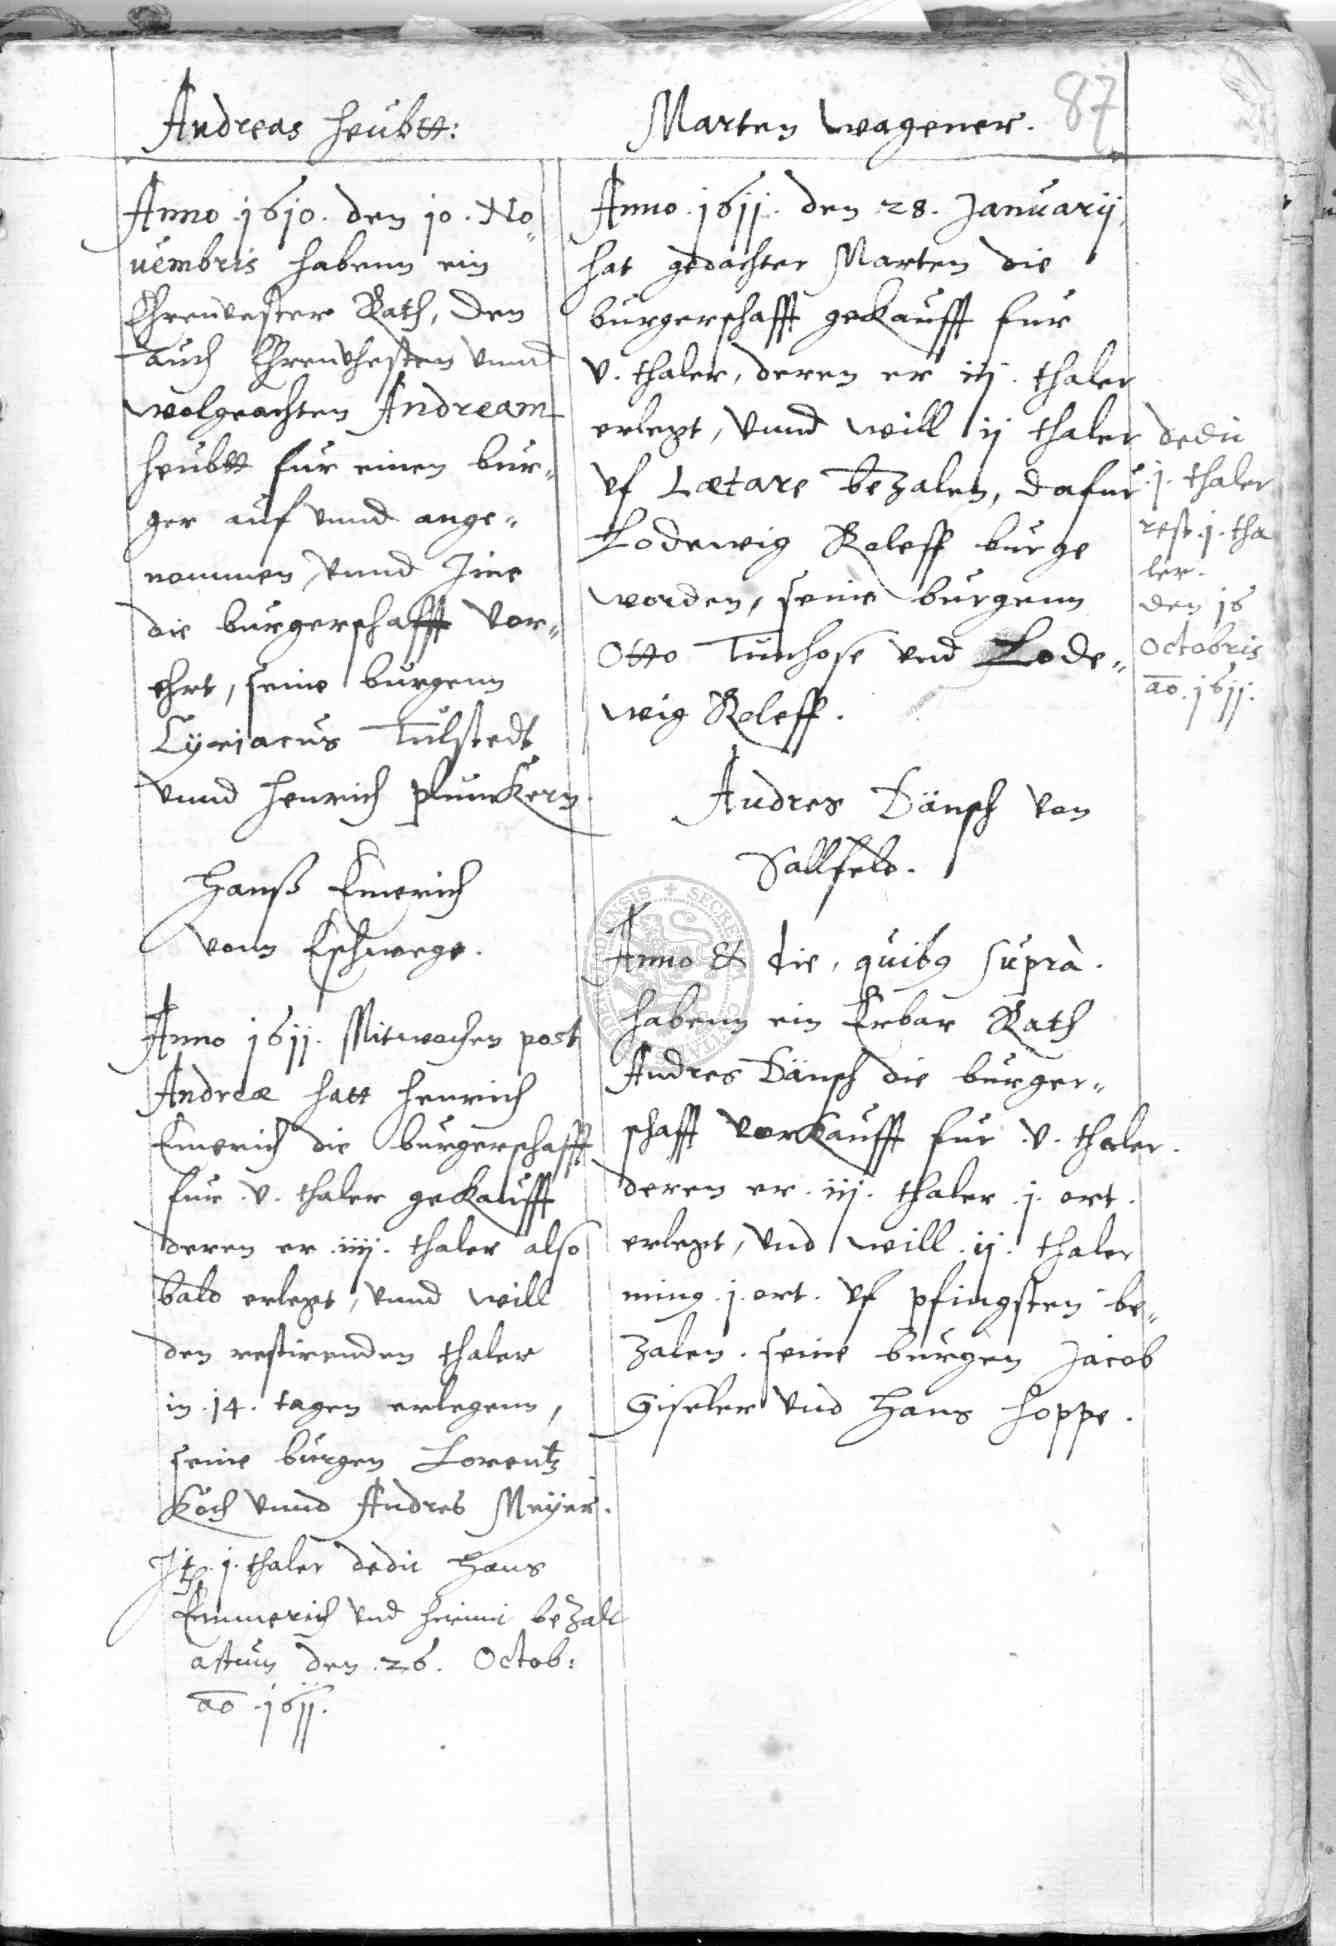 87
Andreas Heubtt:
Anno .1610. den 10. No„
uembris habenn ein
Ehrnuester Rath, den
auch Ehrnthesten vnnd
wolgeachten Andream
Heubtt fur einen bur„
ger auf vnnd ange„
nommen, vnnd Ime
die burgerschafft vor„
ehrt, seine burgenn
Cyriacus Tulstedt
vnnd Henrich Plunckern.
Hanß Emerich
vonn Eschwege.
Anno 1611. Mitwochen post
Andreæ hatt Henrich
Emerich die burgerschafft
fur .v. thaler gekaufft
deren er .iiij. thaler also
bald erlegt, vnnd will
den restirenden thaler
in .14. tagen erlegenn,
seine burgen Lorentz
Koch vnnd Andres Meÿer.
.j. thaler dedit Hans
Emmerich vnd hiemit bezalt
actum den .26. Octob:
ao .1611.
Marten Wagener.
Anno .1611. den .28. Januarij.
hat gedachter Marten die
burgerschafft gekaufft fur
v. thaler, deren er iij. thaler
erlegt, vnnd will ij thaler
vf Lætare bezalen, dafur
Lodewig Roleff burge
worden, seine burgenn
Otto Tunhose vnd Lode„
wig Roleff.
dedit
.j. thaler
rest .j. tha
ler.
den 16
Octobris
ao. 1611.
Andres Dänsch von
Sallfeld.
Anno & die, quib9 suprà.
habenn ein Erbar Rath
Andres Dänsch die burger„
schafft vorkaufft fur .v. thaler.
deren er .iij. thaler .j. ort.
erlegt, vnd will .ij. thaler
ming .j. ort. vf pfingsten be„
zalen. seine burgen Jacob
Giseler vnd Hans Hoppe.